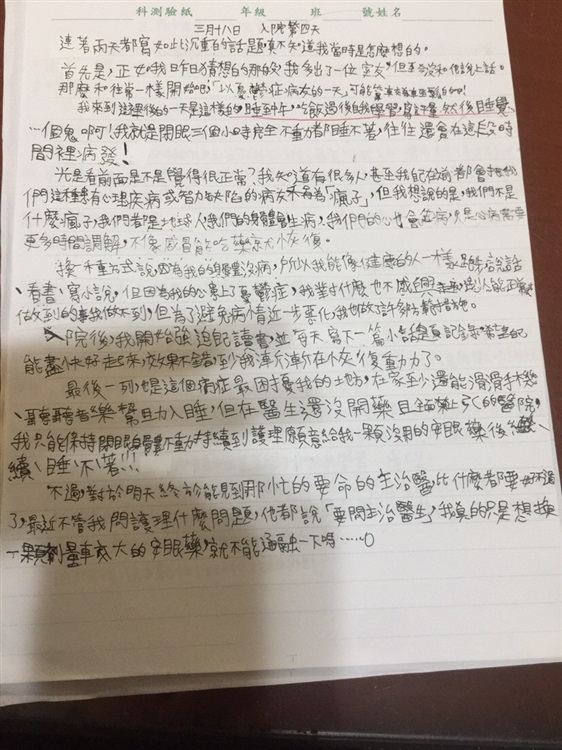 科測驗紙 年級 班 號姓名
三月十八日 入院第四天
連著兩天都寫如此沉重的話題真不知道我當時是怎麼想的。
首先是,正如我昨日猜想的那般,我多出了一位室友,但至今沒和他說上話。
那麼和往常一樣開始吧!「以憂鬱症病友的一天」可能
我來到這裡後的一天是這樣的,睡到午,吃飯過後自我學習,寫計畫 然後睡覺
…個鬼啊!我就是閉眼三個小時完全不動都睡不著,往往還會在這段時
間裡病發!
光是看前面是不是覺得很正常?我知道有很多人甚至我自己在前都會把我
們這種患有心理疾病或智力缺陷的病友稱為「瘋子」,但我想說的是,我們不是
什麼瘋子,我們都是地球人,我們的身體會生病,我們的心也會生病,只是心病需要
更多時間調解,不像感冒能吃藥就恢復。
換一種方式說,因為我的身體沒病,所以我能像健康的人一樣 走路說話
、看書、寫小說,但因為我的心患上了憂鬱症,我對什麼也不感興趣,別人能正常
做到的事我做不到,但為了避免病情近一步惡化,我也做了許多方範措施。
入院後,我開始強迫自己讀書並每天寫下一篇小話題記錄希望自己
能盡快好起來,效果不錯,到我漸漸在恢復動力了。
最後一列,也是這個病症最困擾我的地方,在家至少還能滑滑手機
、聽聽音樂幫助入睡,但在醫生還沒開藥且全面禁止3C的醫院,
我只能保持閉眼身體不動持續到護理願意給我一顆沒用的安眠藥後繼
續、睡、不、著!!!
不過,對於明天終於能見到那忙的要命的主治醫比什麼都要好不過
了,最近不管我問護理什麼問題,他都說「要問主治醫生」,我真的只是想換
一顆劑量較大的安眠藥,就不能通融一下嗎……。